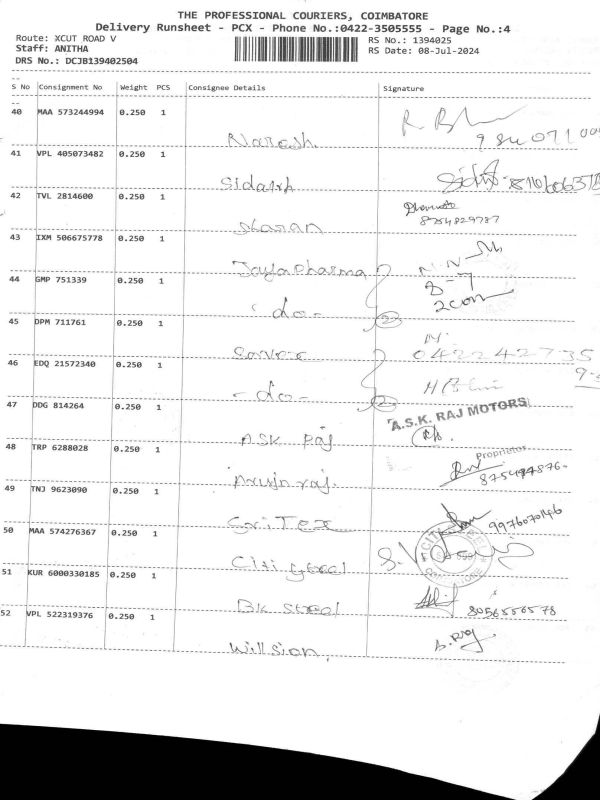 THE PROFESSIONAL COURIERS, COIMBATORE
Delivery Runsheet - PCX - Phone No.:0422-3505555 - Page No.:4
Route: XCUT ROAD V RS No.: 1394025
Staff: ANITHA RS Date: 08-Jul-2024
DRS No.: DCJB139402504
S No Consignment No Weight PCS Consignee Details Signature
40 MAA 573244994 0.250 1
Naresh
41 VPL 405073482 0.250 1
Sidarth
42 TVL 2814600 0.250 1
8754829787
Sharan
43 IXM 506675778 0.250 1
Jayla Pharma
44 GMP 751339 0.250 1
8-7
2com
- do - 2
45 DPM 711761 0.250 1
Savex 042242735
46 EDQ 21572340 0.250 1
- do - 2
47 DDG 814264 0.250 1
A.S.K. RAJ MOTORS
ASK Raj
48 TRP 6288028 0.250 1
Proprietor
Arujn raj.
49 TNJ 9623090 0.250 1
9976070146
Sri Tex
50 MAA 574276367 0.250 1
Citi Steel
51 KUR 6000330185 0.250 1
8056556578
BK Steel
52 VPL 522319376 0.250 1
B. Raj
Willsion.